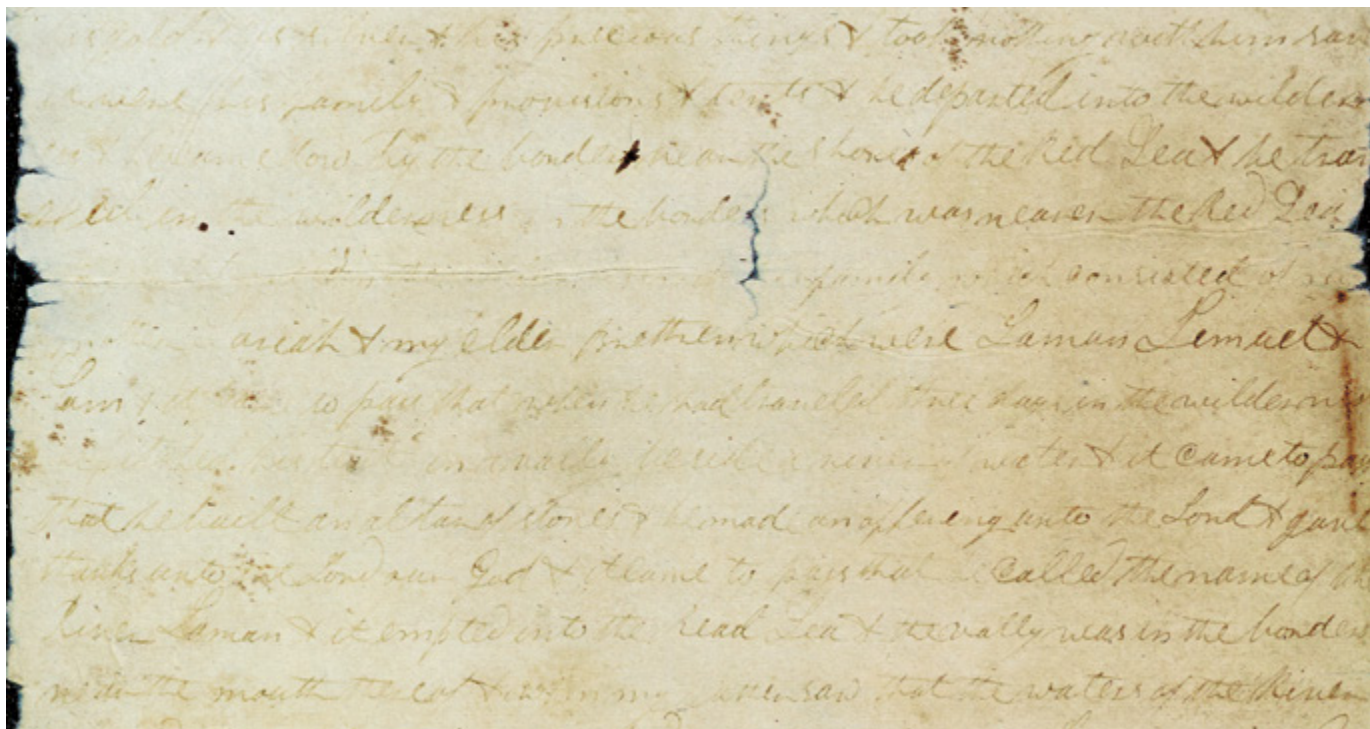 his gold & his silver & his precious things & took nothing with him save
it were his family & provisions & tents & he departed into the wilder
& he came down by the borders near the shores of the Red Sea & he tra
in the wilderness in the borders which was nearer the Red Sea
family which consisted of
Sariah & my elder brethren which were Laman Lemuel &
Sam & it came to pass that when he had traveled three days in the wilderness
he pitched his tent in a vally beside a river of water & it came to pass
that he built an altar of stones & he made an offering unto the Lord & gave
thanks unto the Lord our God & it came to pass that he called the name of the
River Laman & it emptied into the Read Sea & the vally was in the borders
near the mouth thereof & when my father saw that the waters of the River